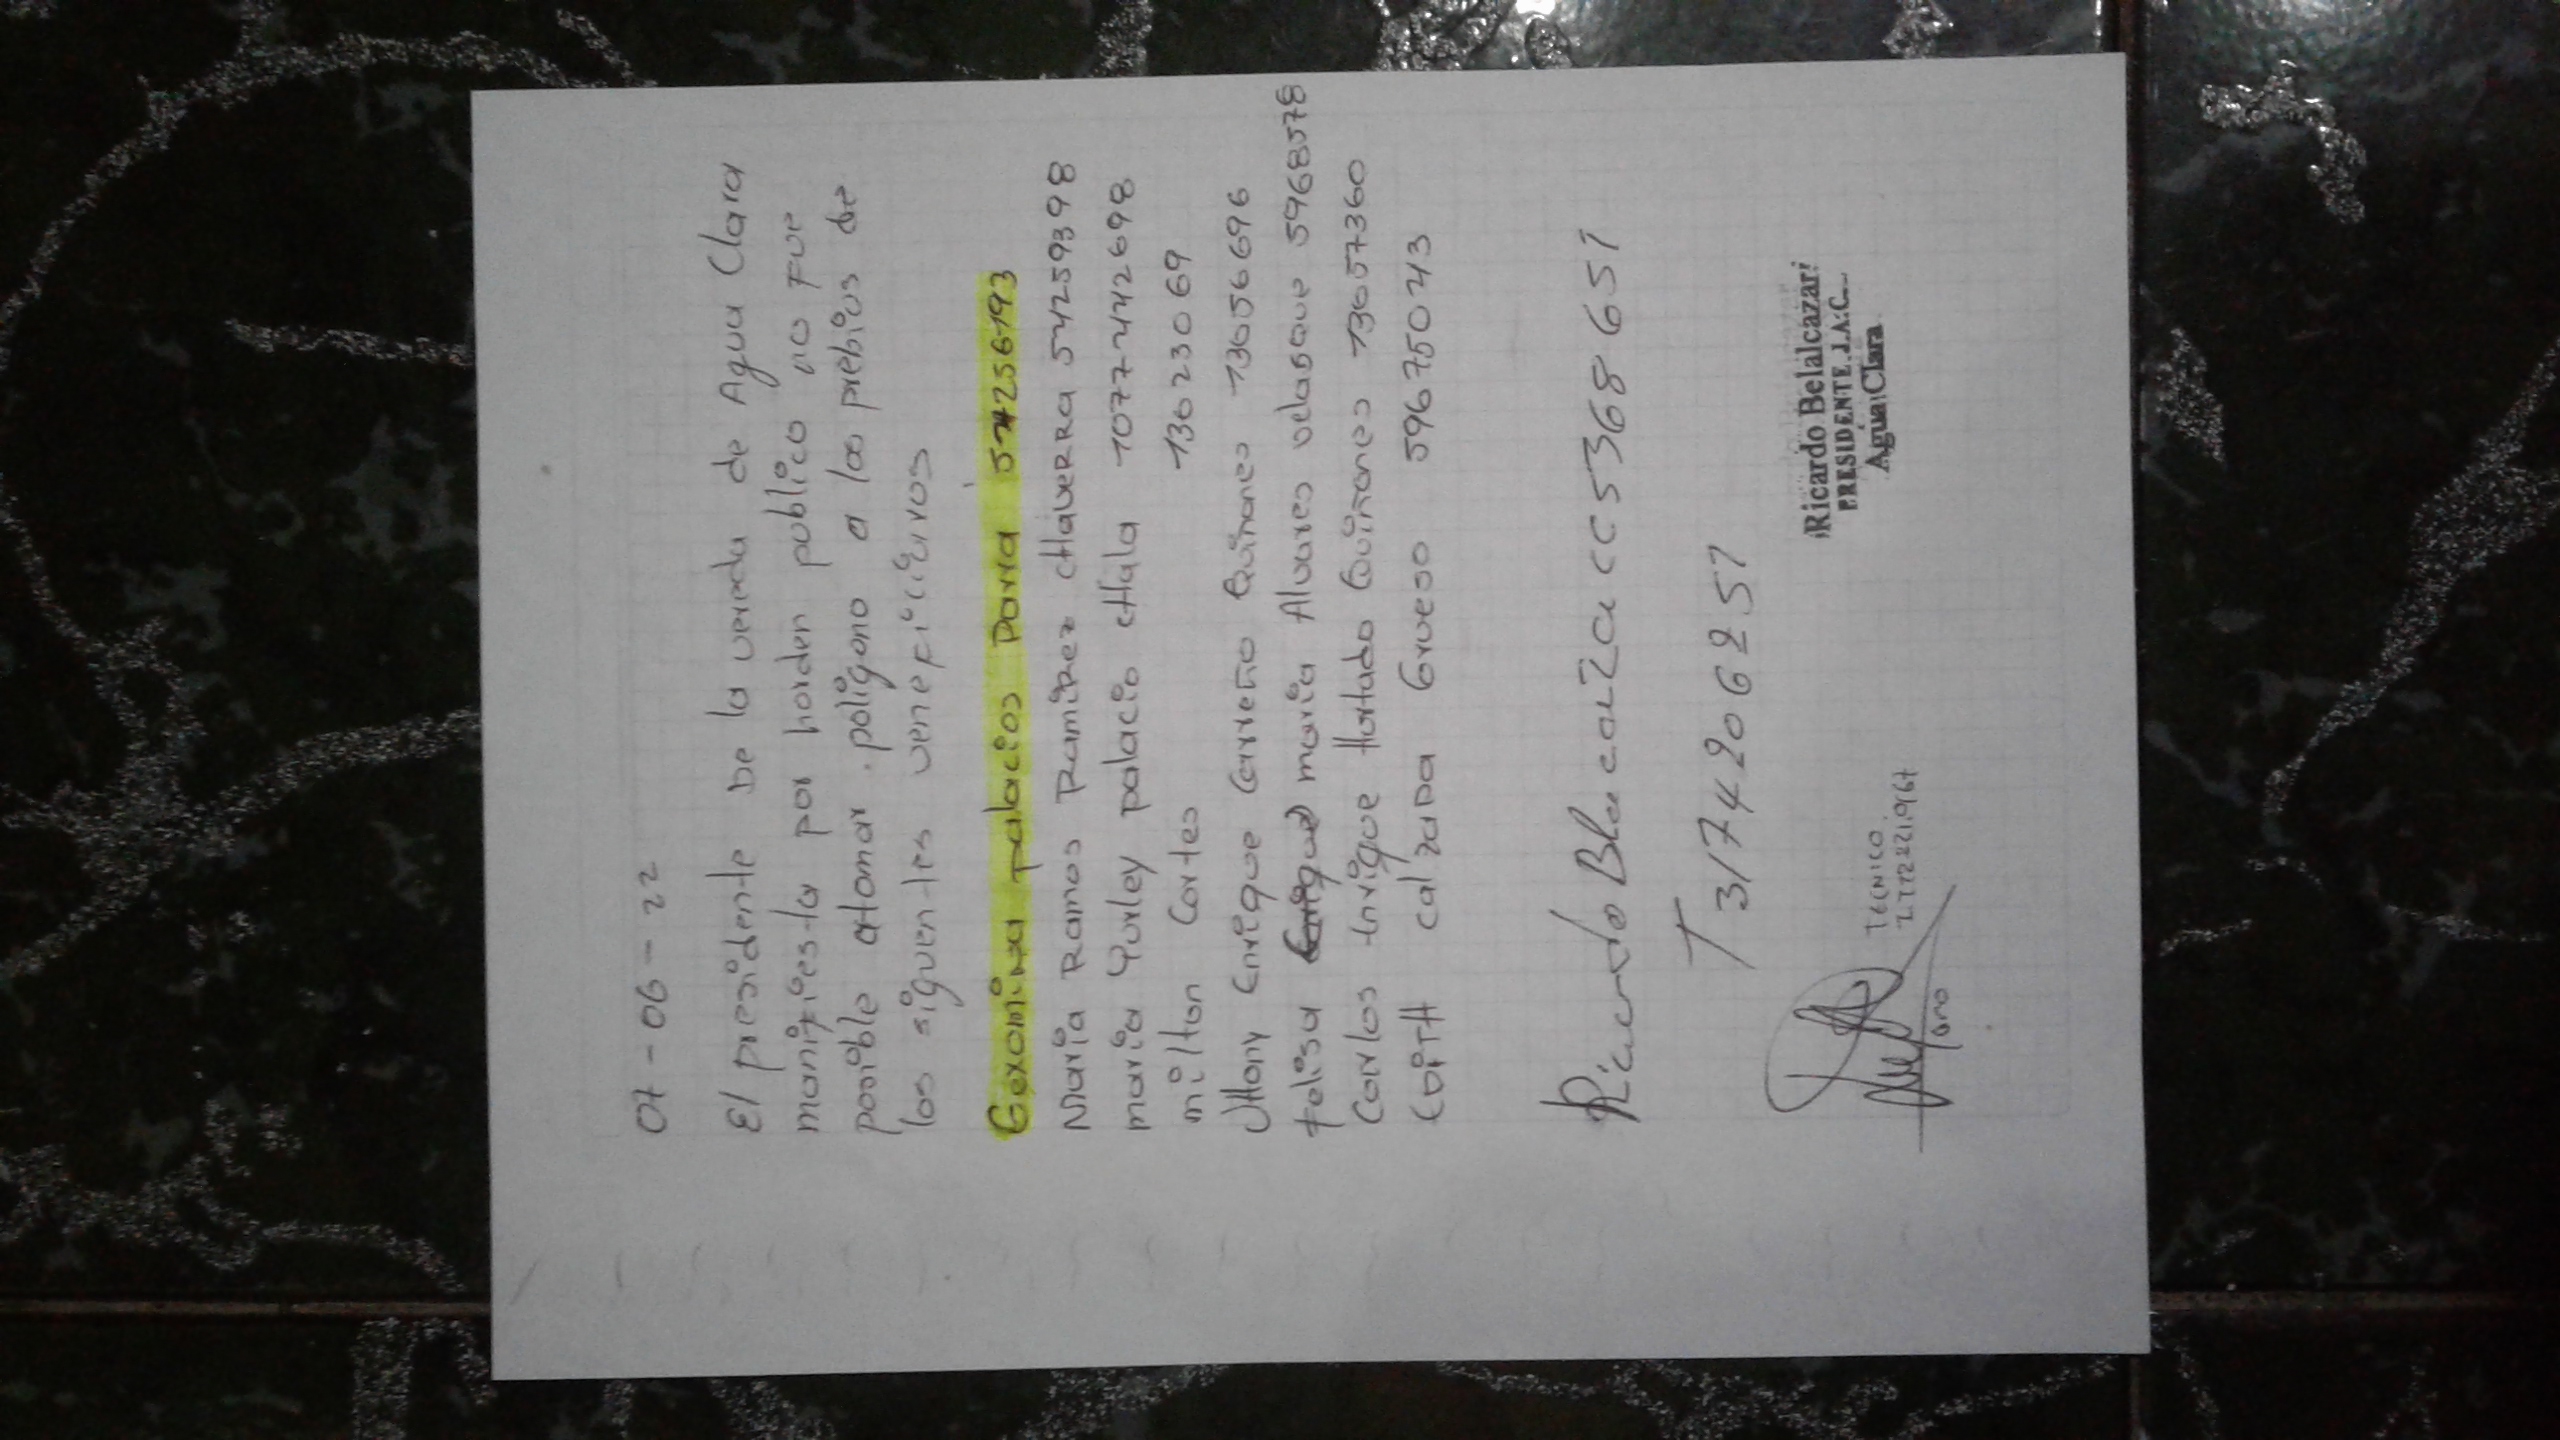 07-06-22
El presidente De la vereda de Agua Clara
manifiesta por horden publico no fue
posible atomar poligono a los prebios de
los siguentes veneficiaros
Gexomina palacios parra 54256193
Maria Ramos Ramirez cHaverra 54259398
maria Yurley palacio cHala 1077442698
milton Cortes 13023069
JHony Enrique Carreño Quinones 13056696
felisa maria Alvares velasque 59685578
Carlos Enrique Hurtado Quiñones 13057360
EDitH calzada Grueso 59675043
Ricardo cc 5368651
T 3174206251
TECNICO
Ricardo Belalcazar
PRESIDENTE. J.A.C.
Agua Clara